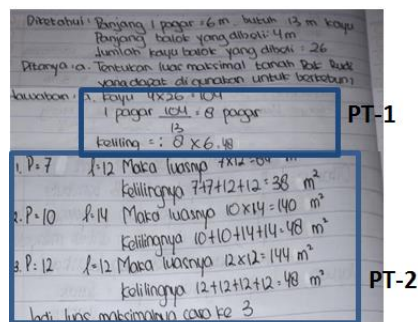 Diketahui : Panjang 1 pagar = 6 m. butuh 13 m kayu
Panjang balok yang dibeli : 4 m
Jumlah kayu balok yang dibeli : 26
Ditanya : a. Tentukan luas maksimal tanah Pak Budi
yang dapat di gunakan untuk berkebun
Jawaban : a. kayu 4x26 = 104
1 pagar 104/13 = 8 pagar
keliling = : 8 x 6 . 48
PT-1
1. P = 7 l = 12 Maka luasnya 7x12 = 84 m²
Kelilingnya 7+7+12+12 = 38 m²
2. P = 10 l = 14 Maka luasnya 10x14 = 140 m²
Kelilingnya 10+10+14+14 = 48 m²
3. P = 12 l = 12 Maka luasnya 12x12 = 144 m²
Kelilingnya 12+12+12+12 = 48 m²
PT-2
Jadi luas maksimalnya cara ke 3